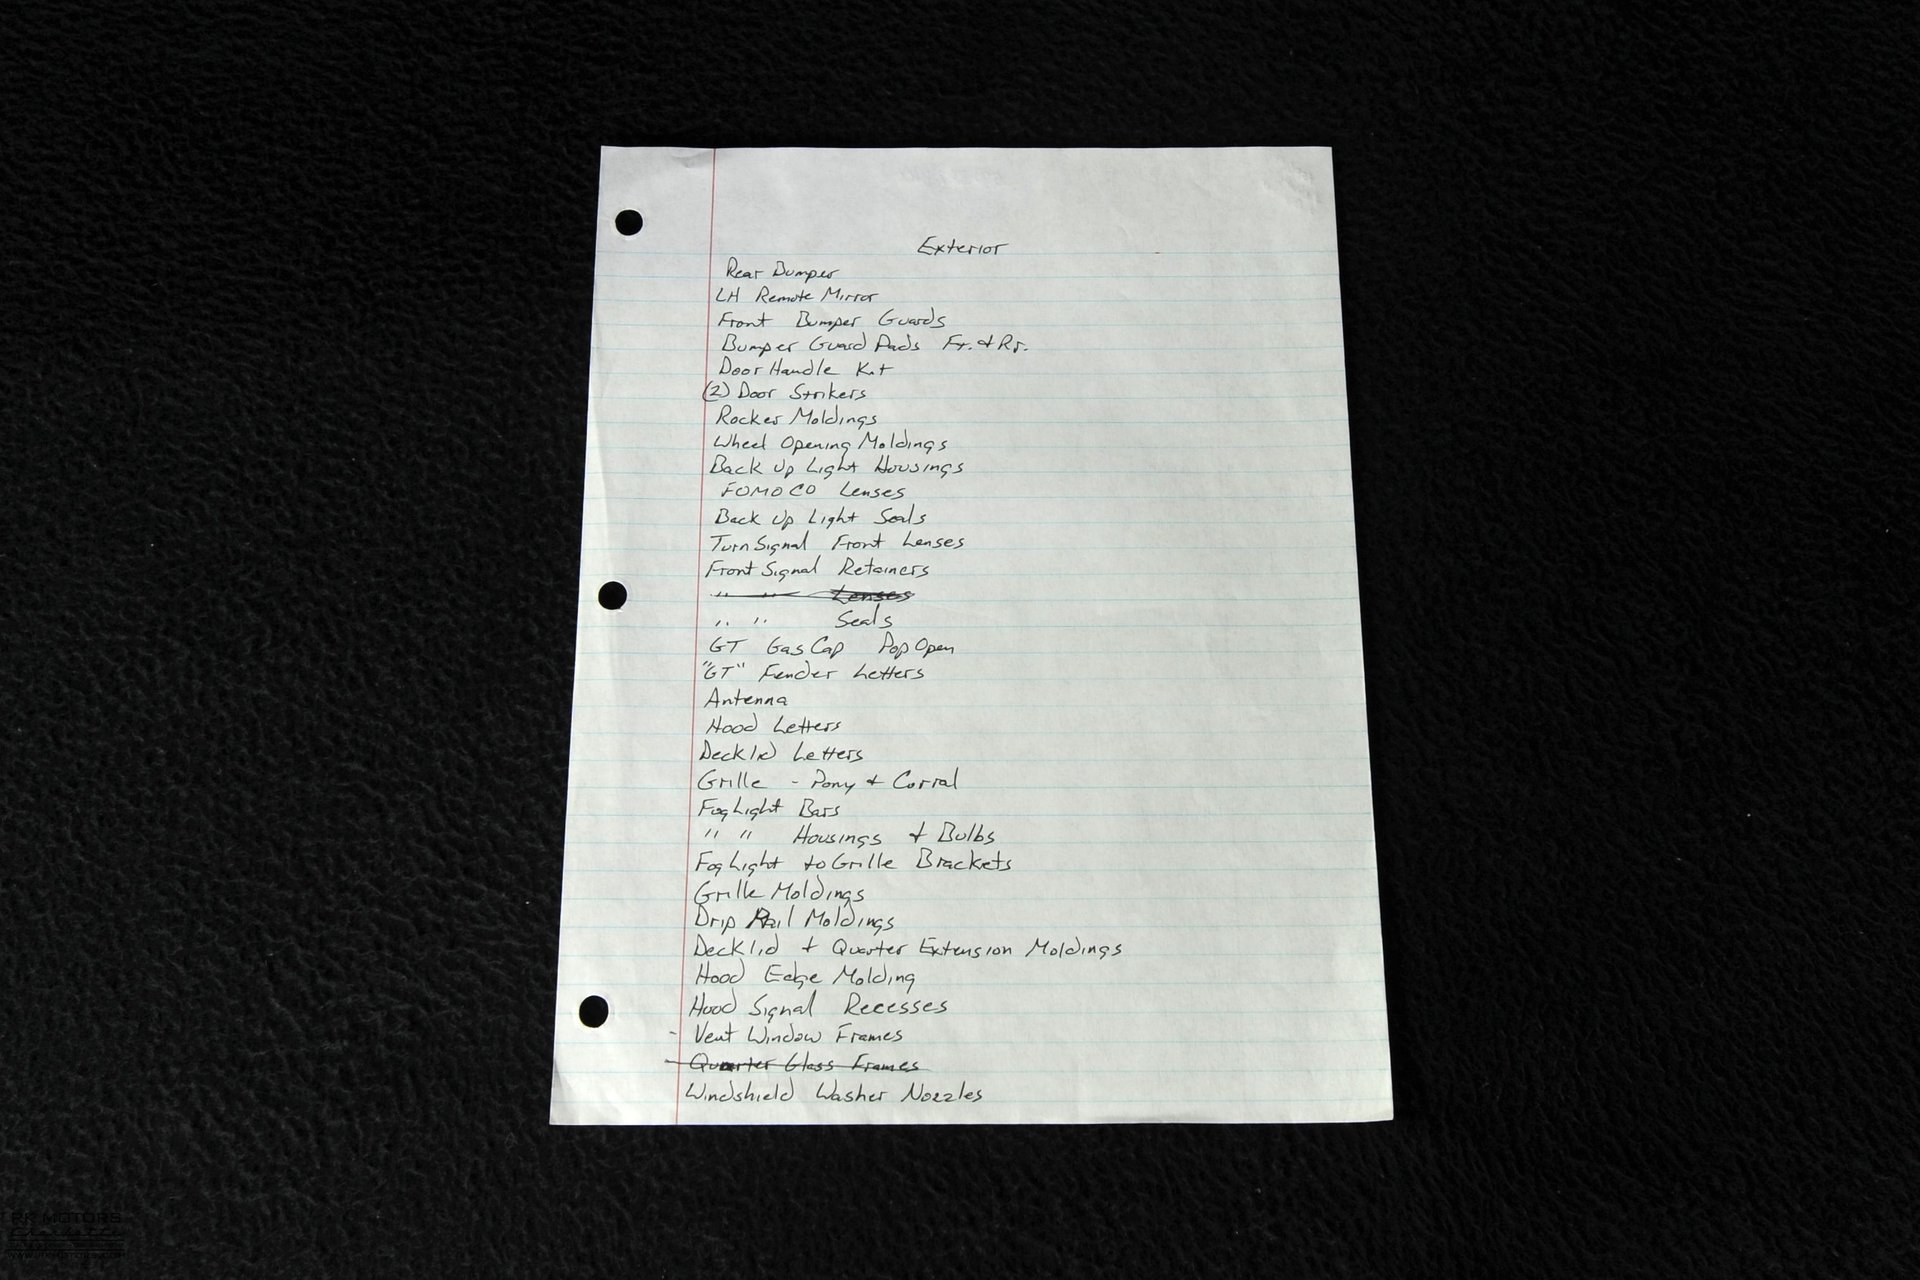 Exterior
Rear Bumper
LH Remote Mirror
Front Bumper Guards
Bumper Guard Pads Fr. & Rr.
Door Handle Kit
(2) Door Strikers
Rocker Moldings
Wheel Opening Moldings
Back Up Light Housings
FOMOCO Lenses
Back Up Light Seals
Turn Signal Front Lenses
Front Signal Retainers
" " Lenses
" " Seals
GT Gas Cap Pop Open
"GT" Fender Letters
Antenna
Hood Letters
Decklid Letters
Grille - Pony & Corral
Fog Light Bars
" " Housings & Bulbs
Fog Light to Grille Brackets
Grille Moldings
Drip Rail Moldings
Decklid & Quarter Extension Moldings
Hood Edge Molding
Hood Signal Recesses
- Vent Window Frames
Quarter Glass Frames
Windshield Washer Nozzles
RK MOTORS